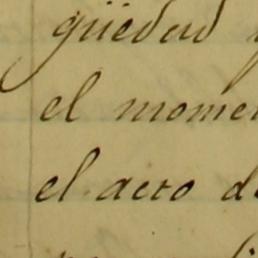 güedad
el momen
el acto de